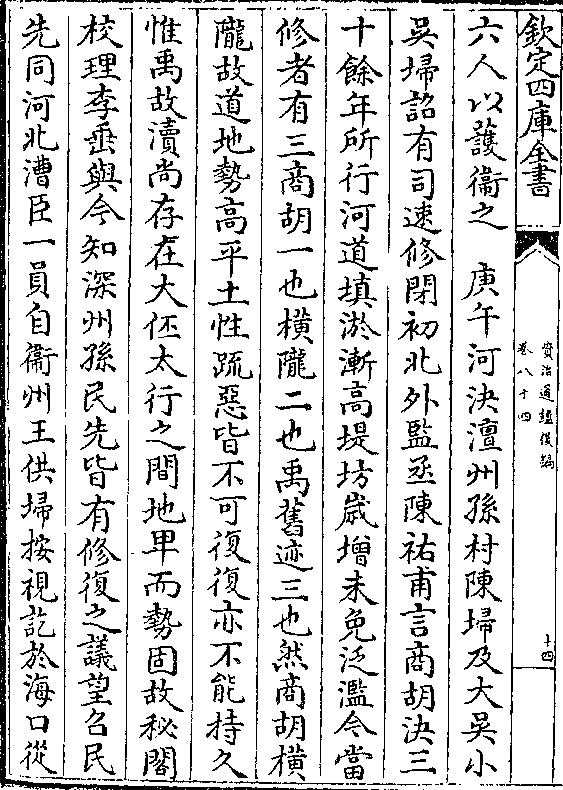 欽定四庫全書
資治通鑑後編
卷八十四
十四
六人以護衞之　庚午河決澶州孫村陳埽及大吳小
吳埽詔有司速修閉初北外監丞陳祐甫言商胡決三
十餘年所行河道填淤漸高堤坊歲增未免泛濫今當
修者有三商胡一也橫隴二也禹舊迹三也然商胡橫
隴故道地勢高平土性疏惡皆不可復復亦不能持久
惟禹故瀆尚存在大伾太行之間地卑而勢固故秘閣
校理李垂與今知深州孫民先皆有修復之議望召民
先同河北漕臣一員自衞州王供埽按視訖於海口從